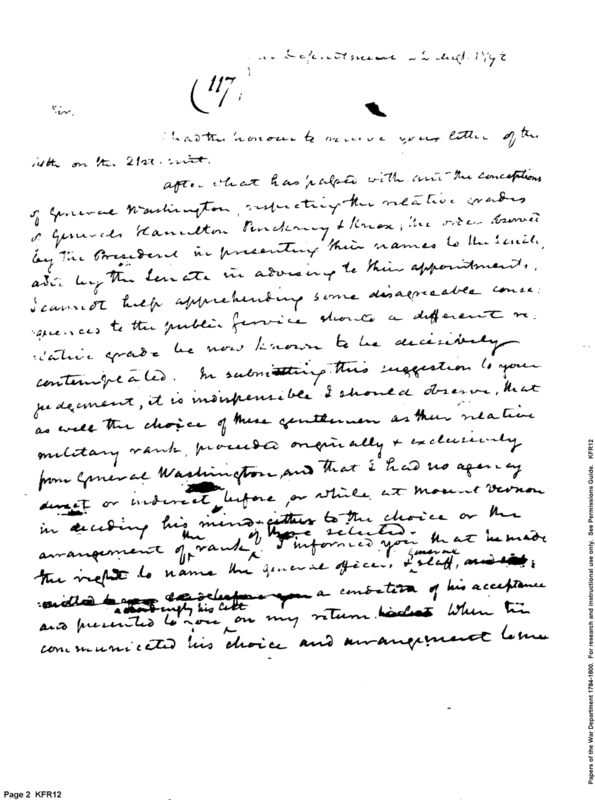 Department Augt. 
(117)
Sir.
I had the honour to receive your letter of the
14th on the 21st.
after what has passed with and the conceptions
of General Washington, respecting the relative grades
of Generals Hamilton Pinckney & Knox, the order observed
by the President in presenting their names to the Senate,
and by the Senate in advising to their appointments,
I cannot help apprehending some disagreeable conse:
quences to the public service should a different re:
lative grade be now known to be decisively
contemplated. In submitting this suggestion to your
judgement, it is indispensible I should observe, that
as well the choice of these gentlemen as their relative
military rank, proceeded originally & exclusively
from General Washington and that I had no agency
direct or indirect before, or while at Mount Vernon
in deciding his mind either to the choice or the
arrangement of the rank of those selected. I informed you that he made
the right to name the general officers & general staff,
a condition of his acceptance
and presented to you accordingly his list on my return. When he
communicated his choice and arrangement to me
Papers of the War Department 1784-1800. For research and instructional use only. See Permissions Guide. KFR12
Page 2 KFR12